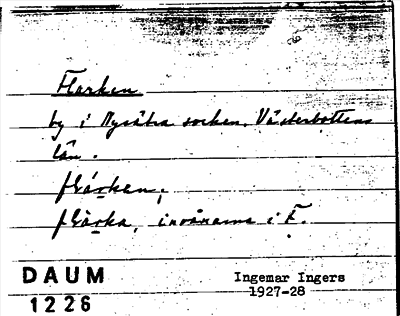 Flarken
by i Nysätra socken, Västerbottens
län.
flárken;
flàrka, invånarna i F.
DAUM
1226
Ingemar Ingers
1927-28